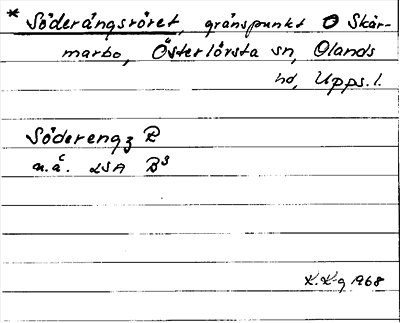 * Söderängsröret, gränspunkt O Skär-
marbo, Österlövsta sn, Olands
hd, Upps. l.
Söderengz R
n.å. LSA B3
K.K-g 1968